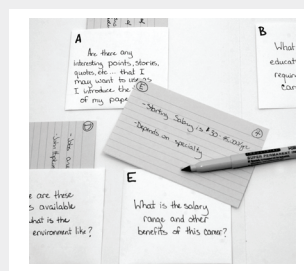 A
Are there any
interesting points, stories,
quotes, etc... that I
may want to use as
I introduce the
of my pape
B
What
educat
requir
car
E
- Starting Salary is
- Depends on specialty
e are these
s available
what is the
environment like?
E
What is the salary
range and other
benefits of this career?